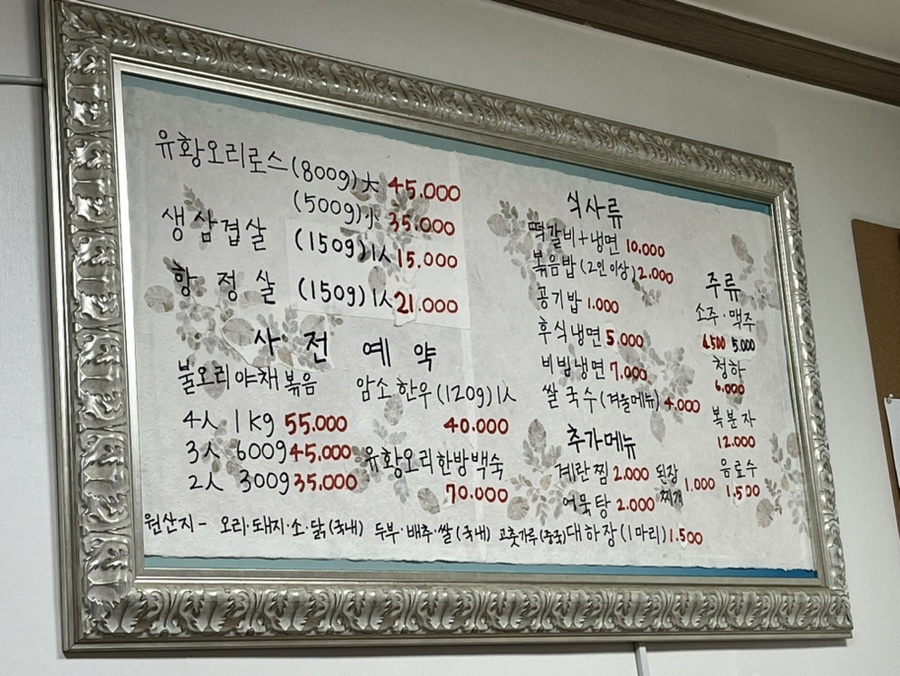 유황오리로스(800g)大 45.000
(500g)小 35.000
생삼겹살 (150g)1人 15.000
항정살 (150g)1人 21.000
사전예약
불오리야채볶음
4人 1kg 55.000
3人 600g 45.000
2人 300g 35.000
암소한우(120g)1人
40.000
유황오리한방백숙
70.000
식사류
떡갈비+냉면 10.000
볶음밥(2인이상) 2.000
공기밥 1.000
후식냉면 5.000
비빔냉면 7.000
쌀국수(겨울메뉴) 4.000
추가메뉴
계란찜 2.000
된장찌개 1.000
어묵탕 2.000
대하장(1마리) 1.500
주류
소주·맥주
4.500 5.000
청하
6.000
복분자
12.000
음료수
1.500
원산지- 오리·돼지·소·닭(국내) 두부·배추·쌀(국내) 고춧가루(중국)